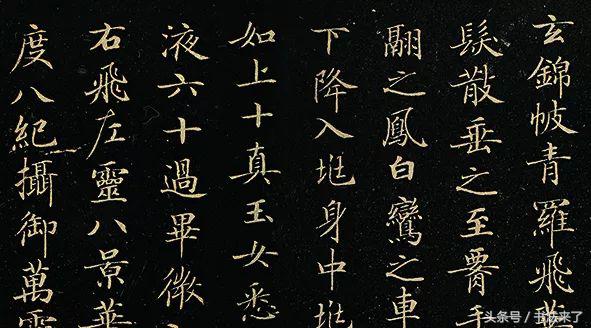 玄錦帔青羅飛華
髮散垂之至腰手
翮之鳳白鸞之車
下降入垗身中垗
如上十真玉女悉
液六十過畢微
右飛左靈八景華
度八紀攝御萬靈
头条号 / 书法来了